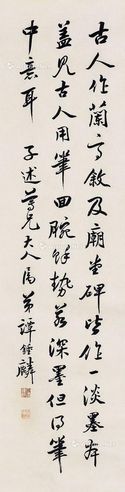 古人作蘭亭敘及廟堂碑皆作一淡墨本
蓋見古人用筆回腕餘勢若深墨但得筆
中意耳 子述尊兄大人屬 弟譚鍾麟